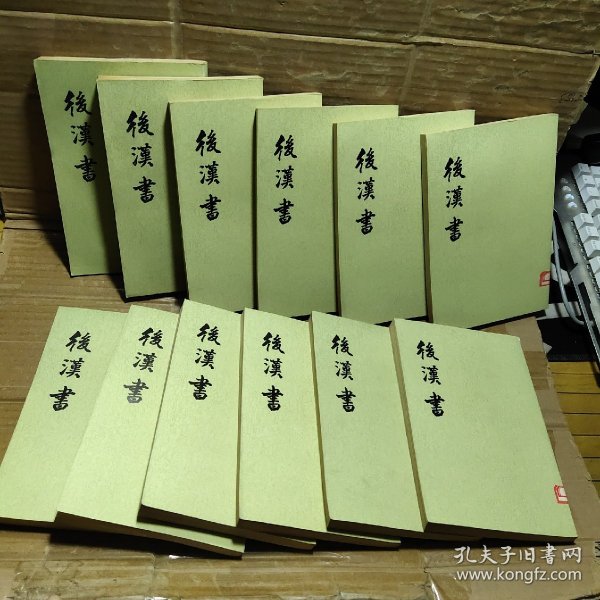 後漢書
後漢書
後漢書
後漢書
後漢書
後漢書
後漢書
後漢書
後漢書
後漢書
後漢書
後漢書
孔夫子旧书网
www.kongfz.com